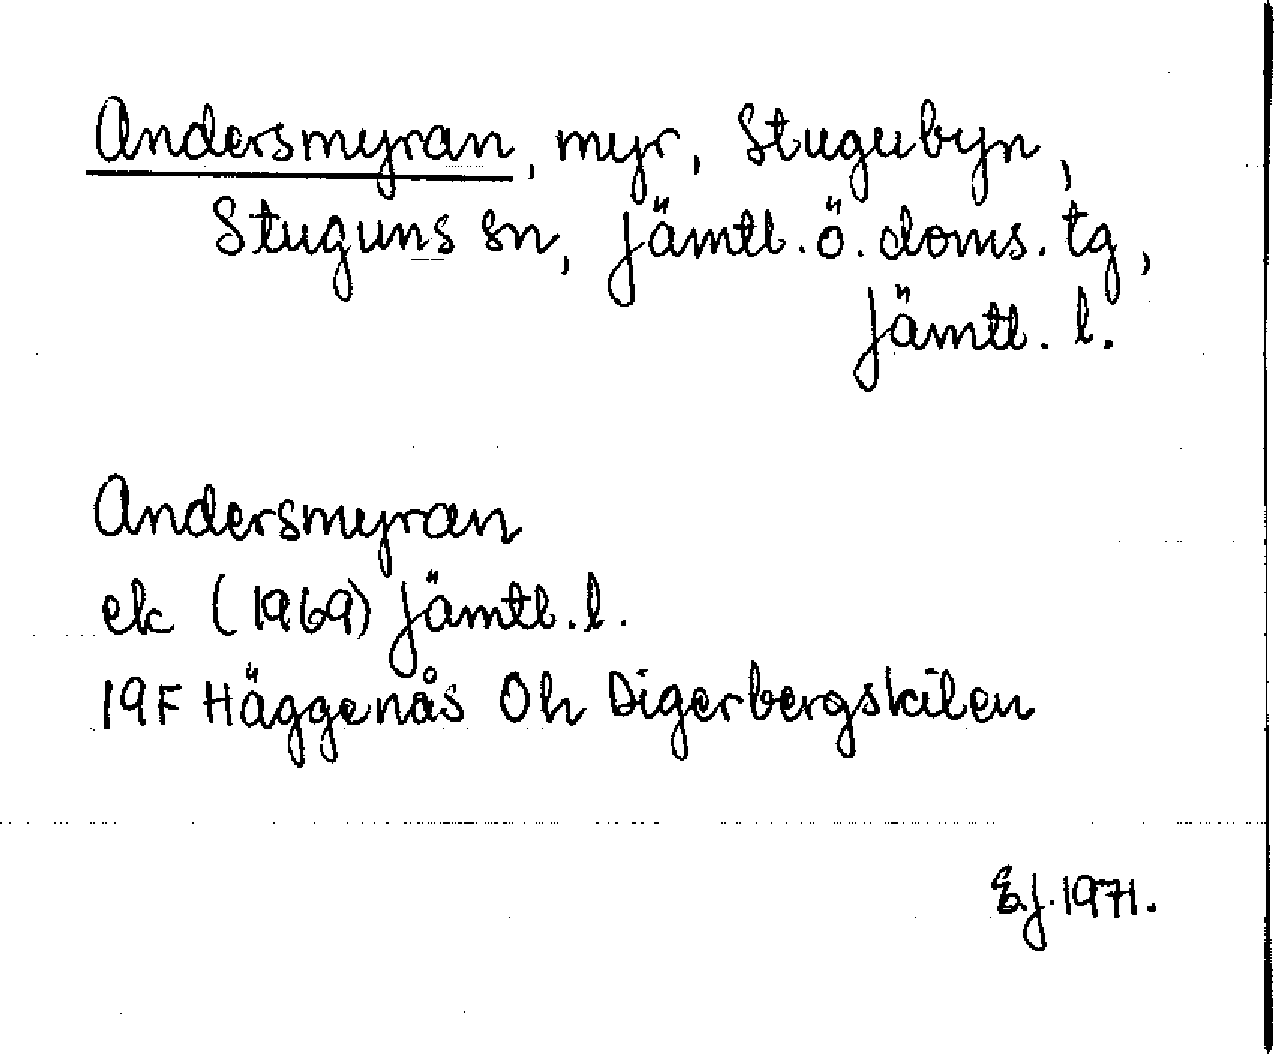 Andersmyran, myr, Stugubyn,
Stuguns sn, Jämtl. ö. doms. tg,
Jämtl. l.
Andersmyran
ek (1969) Jämtl. l.
19F Häggenås 0h Digerbergskilen
EJ. 1971.